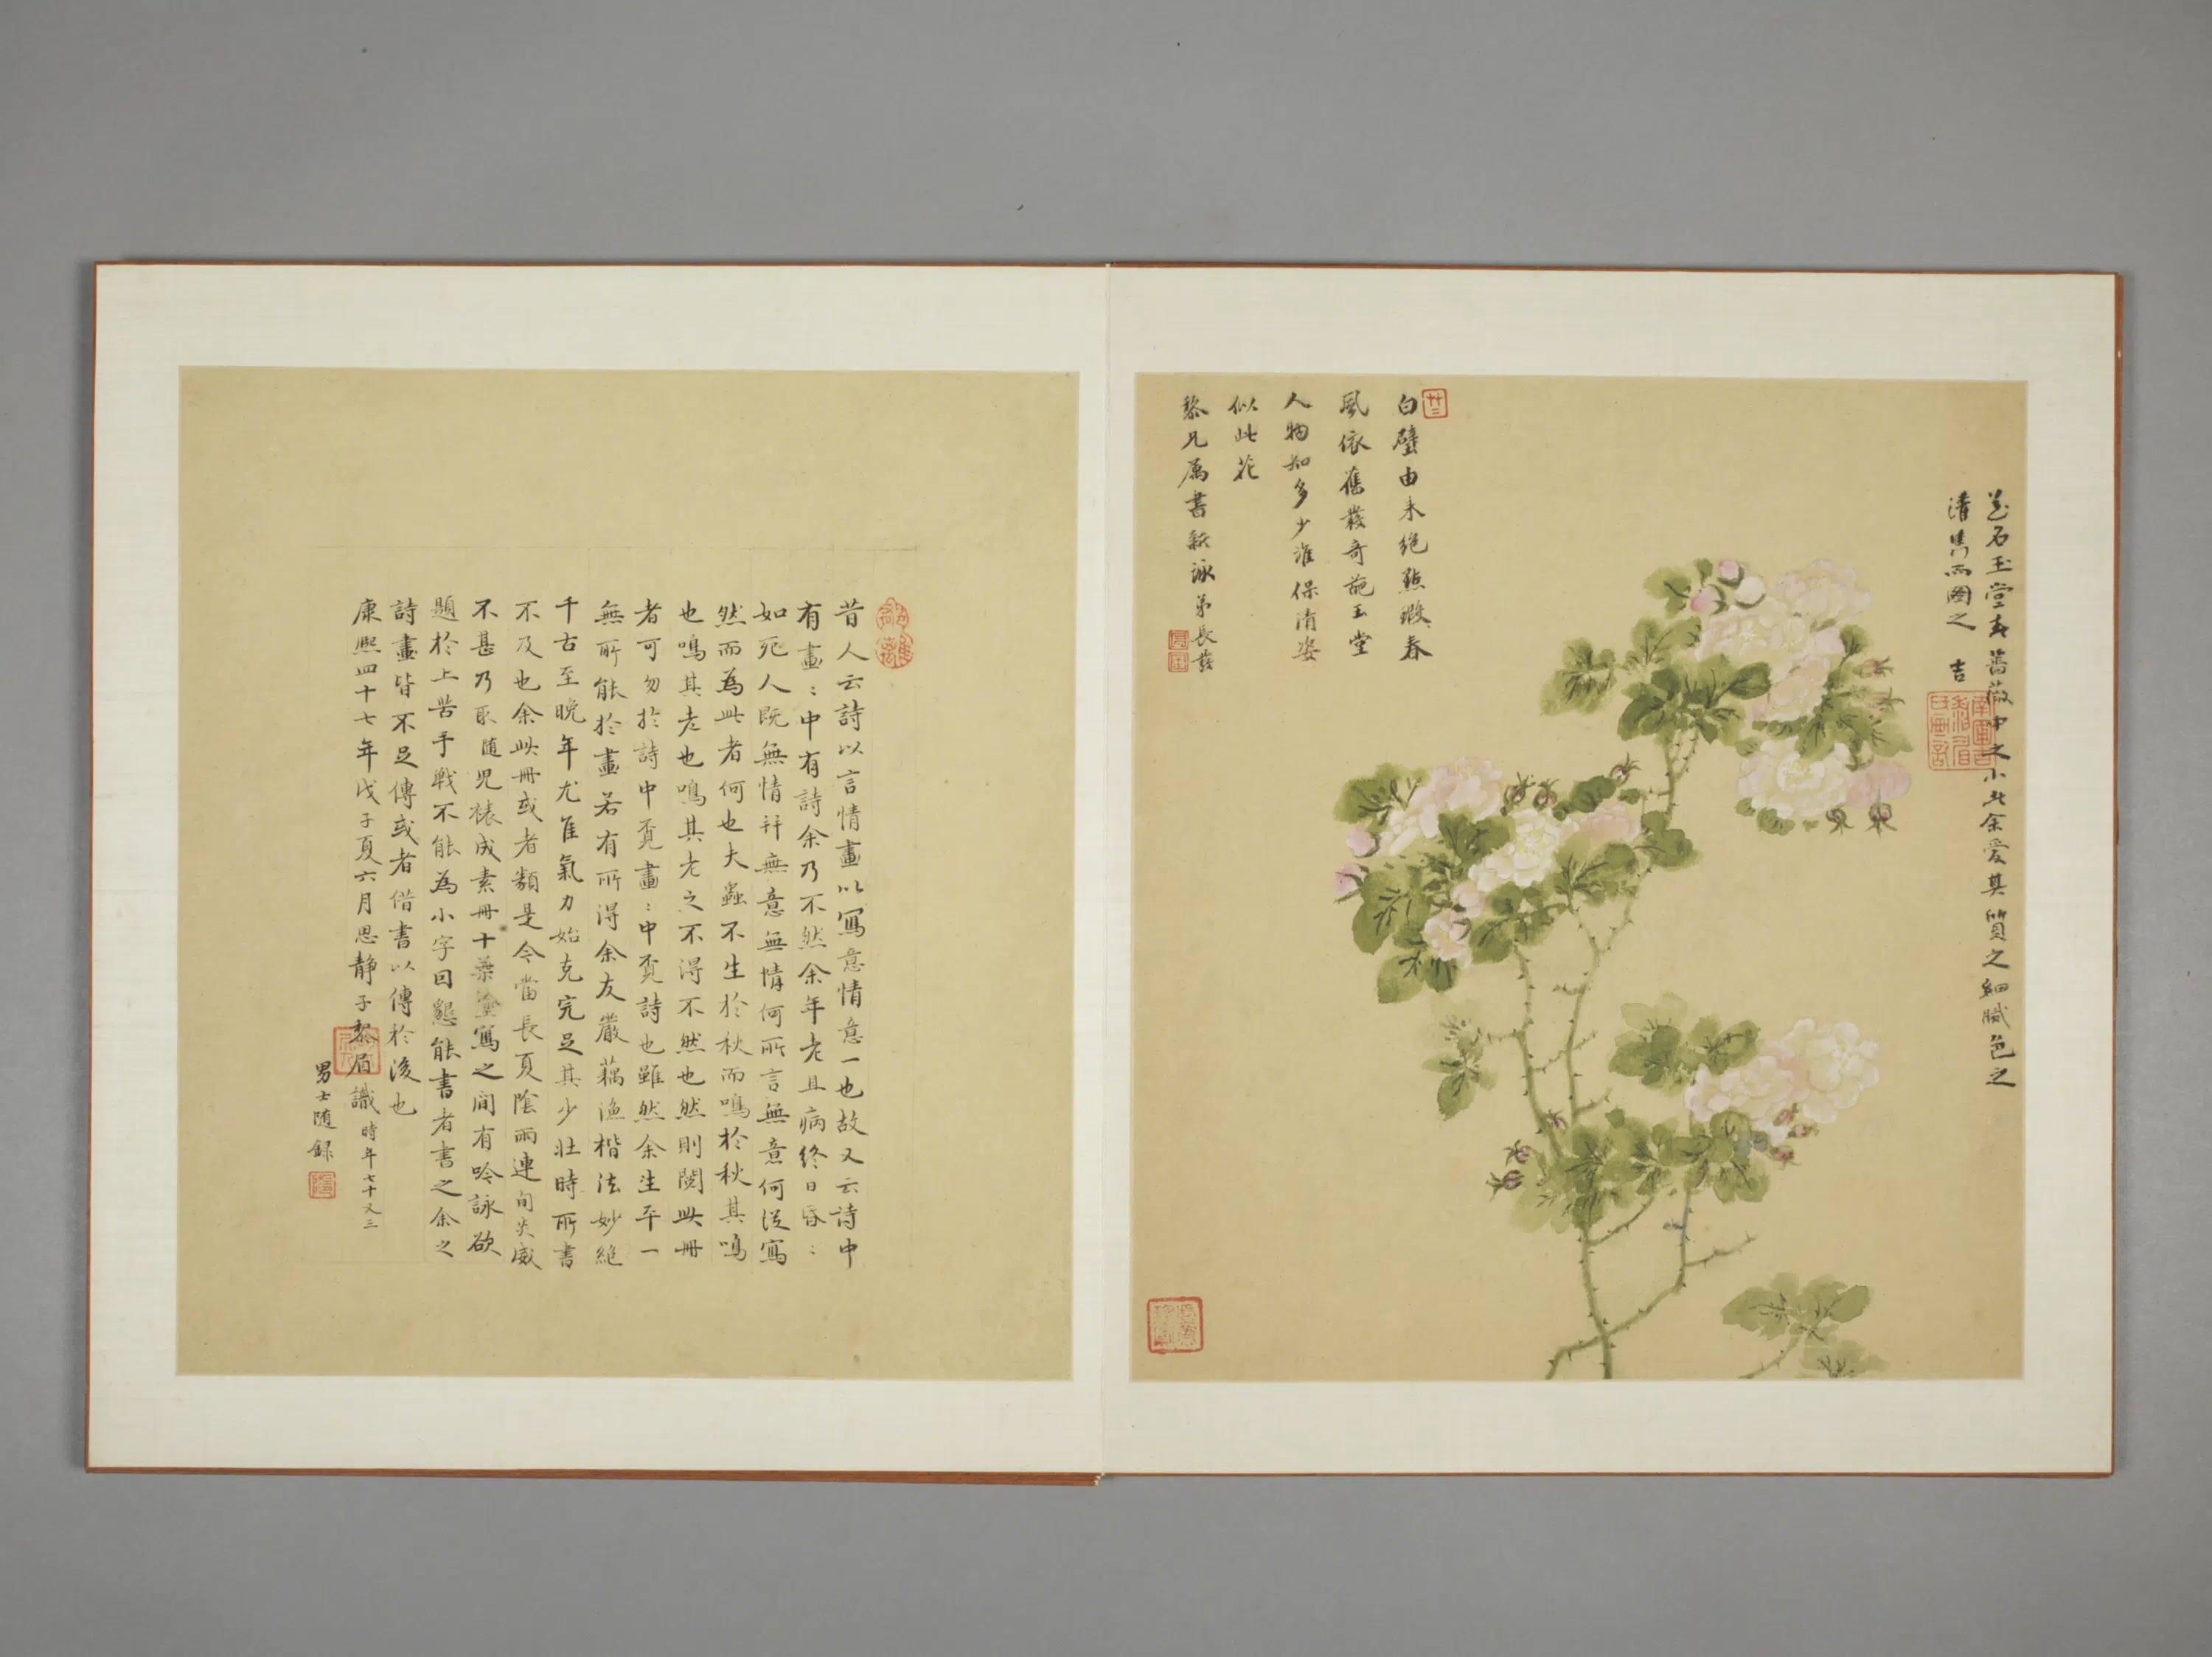 石玉堂春薔薇中之小者余愛其質之細膩色之
清雋而圖之 吉
白璧由来絕點瑕春
風依舊發奇葩玉堂
人物知多少誰保清姿
似此花
黎兄屬書新詠弟長發
昔人云詩以言情畫以寫意情意一也故又云詩中
有畫〻中有詩余乃不然余年老且病終日昏〻
如死人既無情并無意無情何所言無意何從寫
然而為此者何也夫蟲不生於秋而鳴於秋其鳴
也鳴其老也鳴其老之不得不然也然則閱此冊
者可勿於詩中覓畫〻中覓詩也雖然余生平一
無所能於畫若有所得余友嚴藕漁楷法妙絕
千古至晚年尤隹氣力始克完足其少壯時所書
不及也余此冊或者類是今當長夏陰雨連旬炎威
不甚乃取随兒裱成素冊十葉塗寫之間有吟詠欲
題於上苦手戰不能為小字因懇能書者書之余之
詩畫皆不足傳或者借書以傳於後也
康熙四十七年戊子夏六月思靜子黎眉識時年七十又三
男士随錄